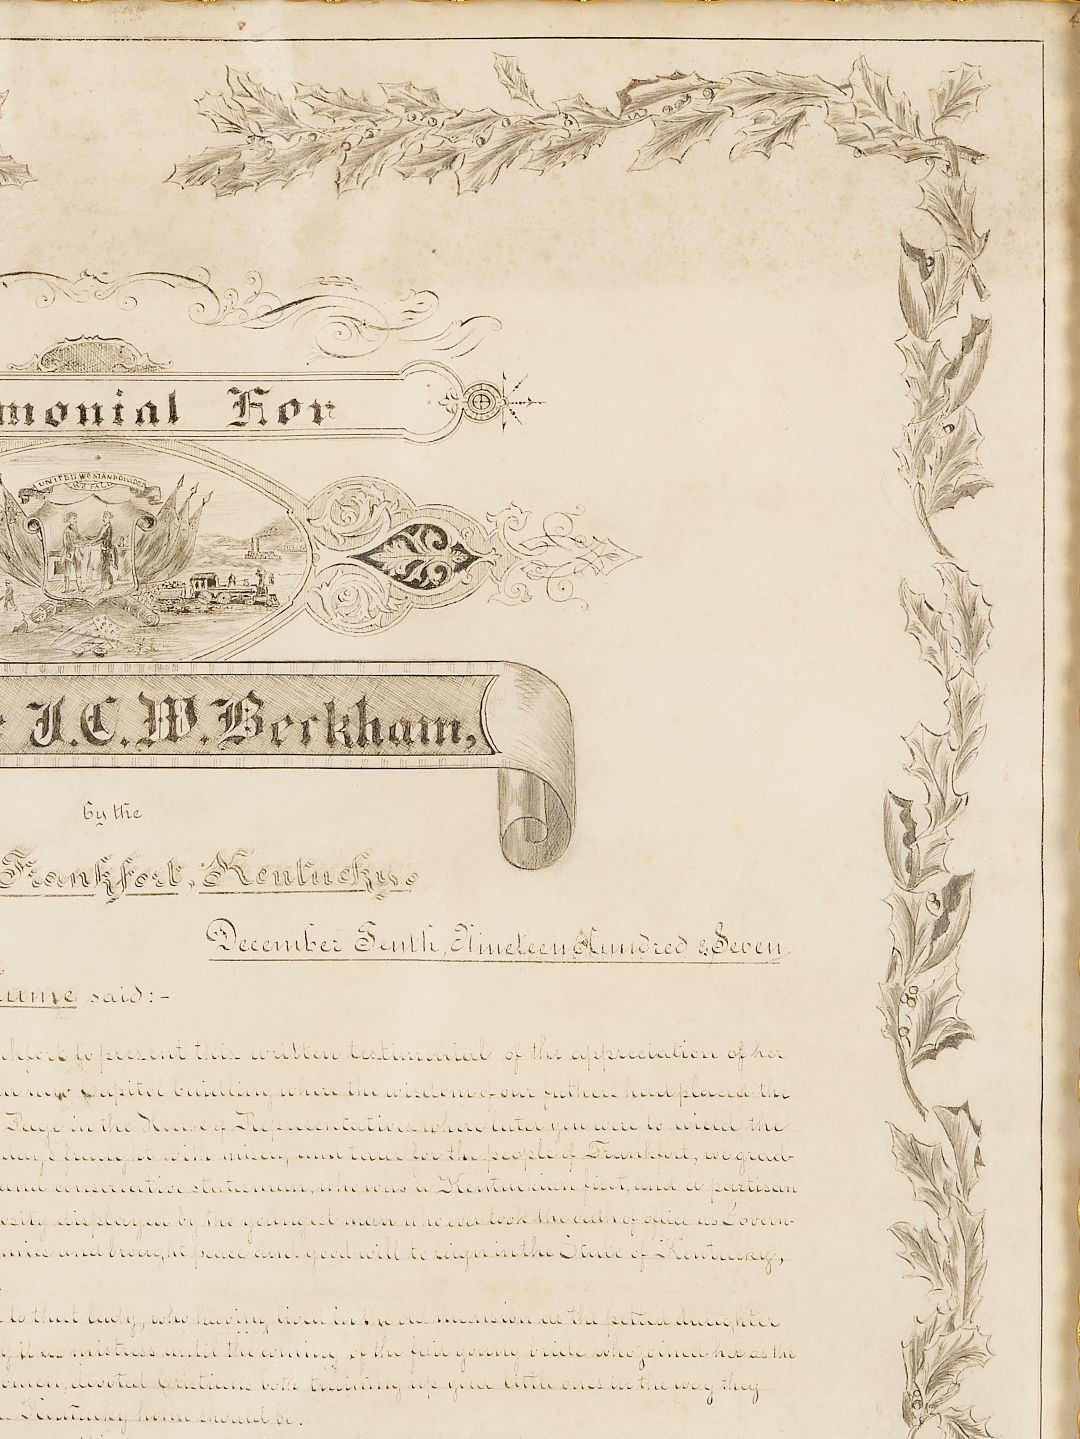 monial For
UNITED WE STAND DIVIDED
WE FALL
J.C.W. Beckham,
by the
Frankfort, Kentucky.
December Tenth, Nineteen Hundred & Seven
ume said:-
kfort to present this written testimonial of the appreciation of her
new Capitol building where the wisdom of our fathers had placed the
Page in the House of Representatives where later you were to wield the
fraught with misery and tears for the people of Frankfort, we grad-
and conservative statesman, who was a Kentuckian first, and a partisan
osity displayed by the youngest man who ever took the oath of office as Govern-
and brought peace and good will to reign in the State of Kentucky,
to that lady, who having lived in the old mansion as the petted daughter
it as mistress until the coming of the fair young bride who joined her as the
women, devoted Christians both training up your little ones in the way they
Kentucky home should be.